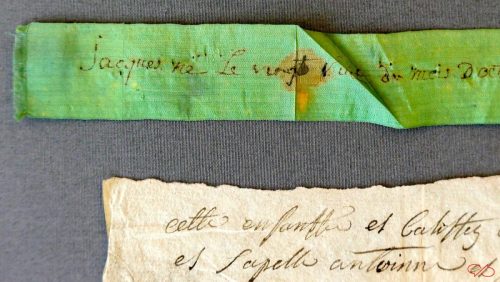 Jacques né Le vingt une du mois D'aou
cette enfantte et Batistteý
et Sapelle antoinne et